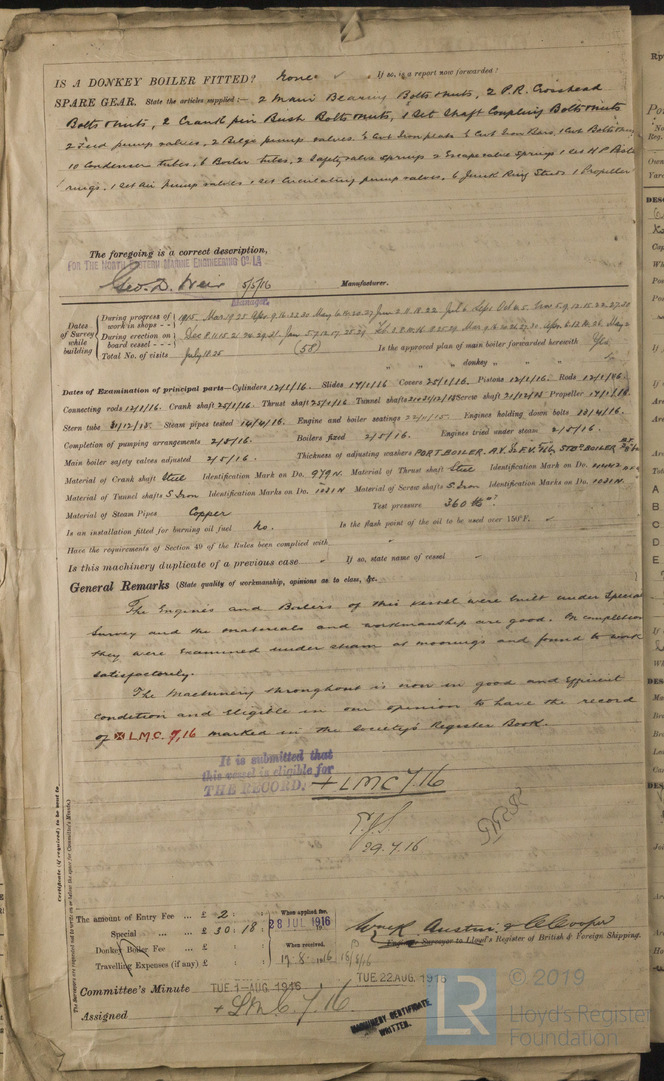 IS A DONKEY BOILER FITTED? None If so, is a report now forwarded?
SPARE GEAR. State the articles supplied:— 2 Main Bearing Bolts & nuts, 2 P.R. Crosshead
Bolts & nuts, 2 Crank pin Bush Bolts & nuts, 1 Set Shaft Coupling Bolts & nuts
2 Feed pump valves, 2 Bilge pump valves. Cut Iron plate Cut Iron Bars, Bolts & nuts
10 Condenser tubes, 6 Boiler tubes, 2 Safety valve springs 2 Escape valve springs 1 Set H.P. Piston
rings. 1 set Air pump valves 1 set Circulating pump valves. 6 Junk Ring Studs 1 Propeller
The foregoing is a correct description,
FOR THE NORTH EASTERN MARINE ENGINEERING Co. Ld.
Geo. D. Weir 5/5/16 Manufacturer.
Manager,
Dates of Survey while building
During progress of work in shops - - 1915. Mar 19. 25 Apr. 9. 16. 22. 30 May 6. 14. 20. 27 Jun 2. 11. 18. 22
During erection on board vessel - - -
Total No. of visits July 11. 25 (58) Is the approved plan of main boiler forwarded herewith Yes
" " " donkey " " "
Dates of Examination of principal parts—Cylinders 12/1/16. Slides 17/1/16 Covers 25/1/16. Pistons 12/1/16. Rods 12/1/16.
Connecting rods 12/1/16. Crank shaft 25/1/16. Thrust shaft 25/1/16 Tunnel shafts Screw shaft 21/12/15 Propeller 17/1/16
Stern tube 21/12/15. Steam pipes tested 14/4/16. Engine and boiler seatings 22/11/15. Engines holding down bolts 10/4/16.
Completion of pumping arrangements 2/5/16. Boilers fixed 2/5/16. Engines tried under steam 2/5/16.
Main boiler safety valves adjusted 2/5/16. Thickness of adjusting washers PORT. BOILER. STBD BOILER
Material of Crank shaft Steel Identification Mark on Do. 979 N. Material of Thrust shaft Steel Identification Mark on Do.
Material of Tunnel shafts S. Iron Identification Marks on Do. 1031 N. Material of Screw shafts S. Iron Identification Marks on Do. 1031 N.
Material of Steam Pipes Copper Test pressure 360 lbs
Is an installation fitted for burning oil fuel No. Is the flash point of the oil to be used over 150°F.
Have the requirements of Section 49 of the Rules been complied with
Is this machinery duplicate of a previous case If so, state name of vessel
General Remarks (State quality of workmanship, opinions as to class, &c.
The Engines and Boilers of this vessel were built under Special
Survey and the materials and workmanship are good. On completion
they were examined under steam at moorings and found to work
satisfactorily.
The Machinery throughout is now in good and efficient
condition and eligible in our opinion to have the record
of ✠ L.M.C. 7,16 marked in the Society's Register Book.
It is submitted that
this vessel is eligible for
THE RECORD. + LMC 7.16
29.7.16
Certificate (if required) to be sent to
The Surveyors are requested not to write on or below the space for Committee's Minute.
The amount of Entry Fee ... £ 2 : : When applied for,
Special ... ... £ 30 : 18 : 28 JUL 1916
Donkey Boiler Fee ... £ : : When received,
Travelling Expenses (if any) £ : : 17. 8. 1916
Surveyor to Lloyd's Register of British & Foreign Shipping.
Committee's Minute TUE. 1 - AUG. 1916 TUE. 22 AUG. 1916
Assigned + LMC 7.16
MACHINERY CERTIFICATE
WRITTEN.
LR © 2019
Lloyd's Register
Foundation